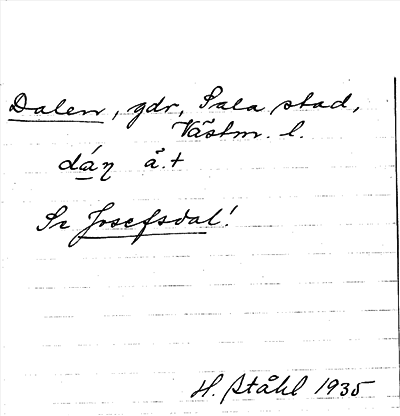 Dalen, gdr, Sala stad,
Västm. l.
dáη å.+
Se Josefsdal!
H. Ståhl 1935